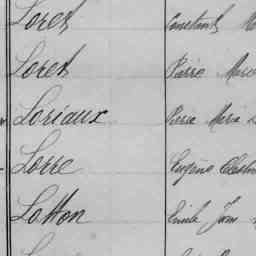 Loret Constant
Loret Pierre Marie
Loriaux Pierre Marie
Lorre Eugène
Lotton Emile Jean